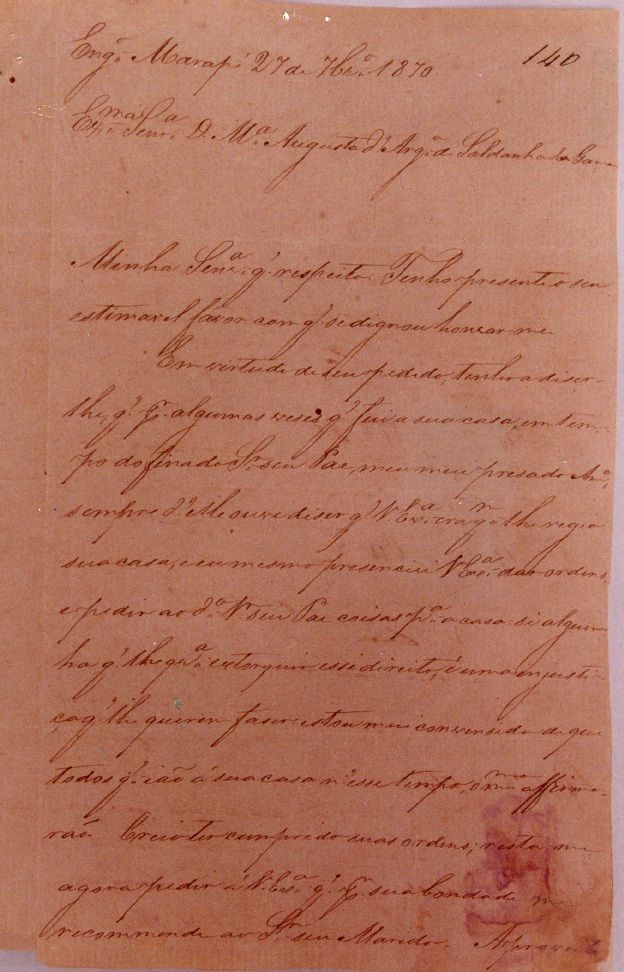 Engº Marapé 27 de 7brº 1870
140
Exma Senrª D. Mª Augusta d'Arqª de Saldanha da Gama
Minha Senrª q' respeito. Tenho presente o seu
estimavel favor com q' se dignou honrar-me
Em virtude de seu pedido, tenho a diser-
lhe, q' pr. algumas veses q' fui a sua casa, em tem-
po do finado Sr. seu Pae, meu meu presado Amº,
sempre d'elle ouvi diser q' V. Exª era qm lhe regia
sua casa, e eu mesmo presenciei V. Exª dar ordens,
e pedir ao dº Sr. seu Pae coisas pª a casa: si algum
ha q' lhe qrª extorquir esse direito, é uma injusti-
ça q' lhe querem faser: estou mui convensido de que
todos q' ião á sua casa n'esse tempo, o mmo affirma-
rão. Creio ter cumprido suas ordens; resta-me
agora pedir á V. Exª q' pr. sua bondade me
recommende ao Sr. seu Marido. Aproveito